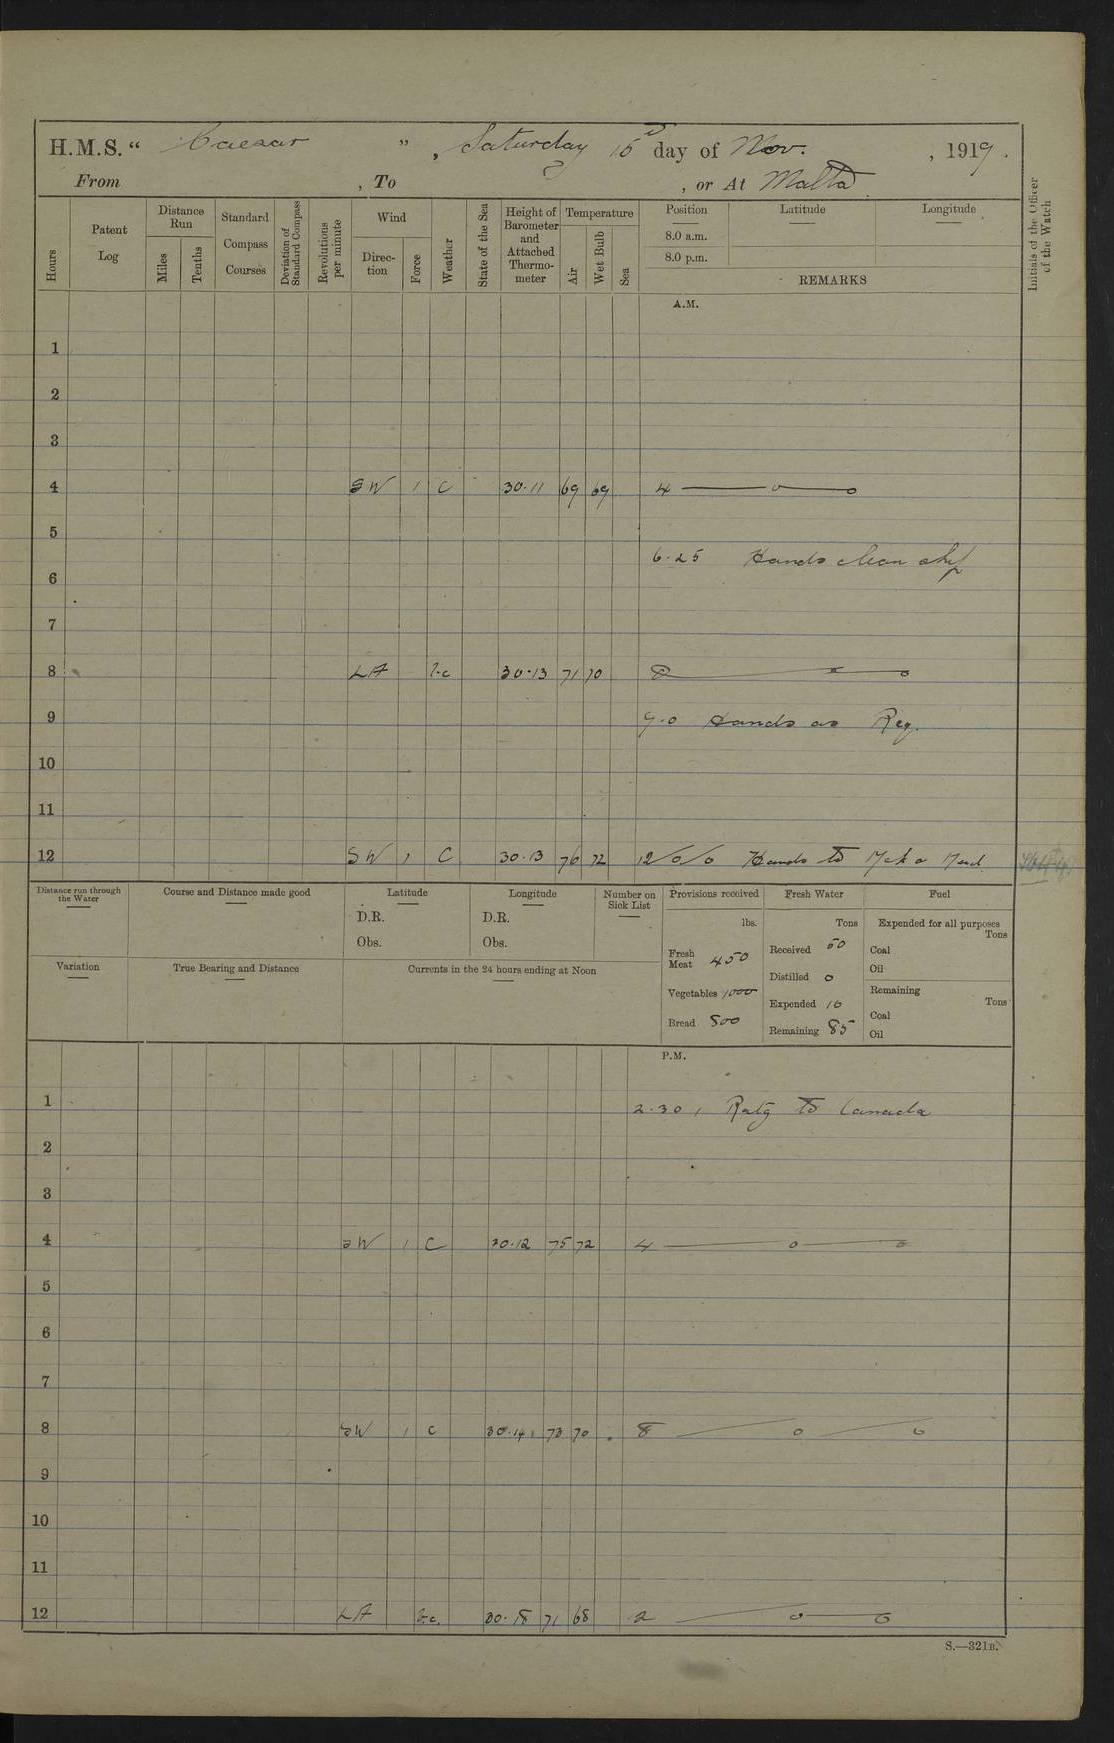 H.M.S. “ Caesar ” , Saturday 15 day of Nov. , 1919.
From , To , or At Malta
Hours
Patent Log
Distance Run
Miles
Tenths
Standard Compass Courses
Deviation of Standard Compass
Revolutions per minute
Wind
Direction
Force
Weather
State of the Sea
Height of Barometer and Attached Thermometer
Temperature
Air
Wet Bulb
Sea
Position Latitude Longitude
8.0 a.m.
8.0 p.m.
REMARKS
Initials of the Officer of the Watch
A.M.
1
2
3
4 SW 1 C 30.11 69 69 4 — o — o
5
6.25 Hands clean ship
6
7
8 LA b.c 30.13 71 70 8 — o
9 9.0 Hands as Req.
10
11
12 SW 1 C 30.13 76 72 12 o/o Hands to
Distance run through the Water
Course and Distance made good
Latitude
D.R.
Obs.
Longitude
D.R.
Obs.
Number on Sick List
Variation
True Bearing and Distance
Currents in the 24 hours ending at Noon
Provisions received
lbs.
Fresh Meat 450
Vegetables 1000
Bread 800
Fresh Water
Tons
Received 50
Distilled 0
Expended 10
Remaining 85
Fuel
Expended for all purposes
Tons
Coal
Oil
Remaining
Tons
Coal
Oil
P.M.
1 2.30, Ratg to Canada
2
3
4 SW 1 C 30.12 75 72 4 — o — o
5
6
7
8 SW 1 C 30.14 73 70 8 — o — o
9
10
11
12 LA b.c. 30.18 71 68 2 — o — o
S.—321B.